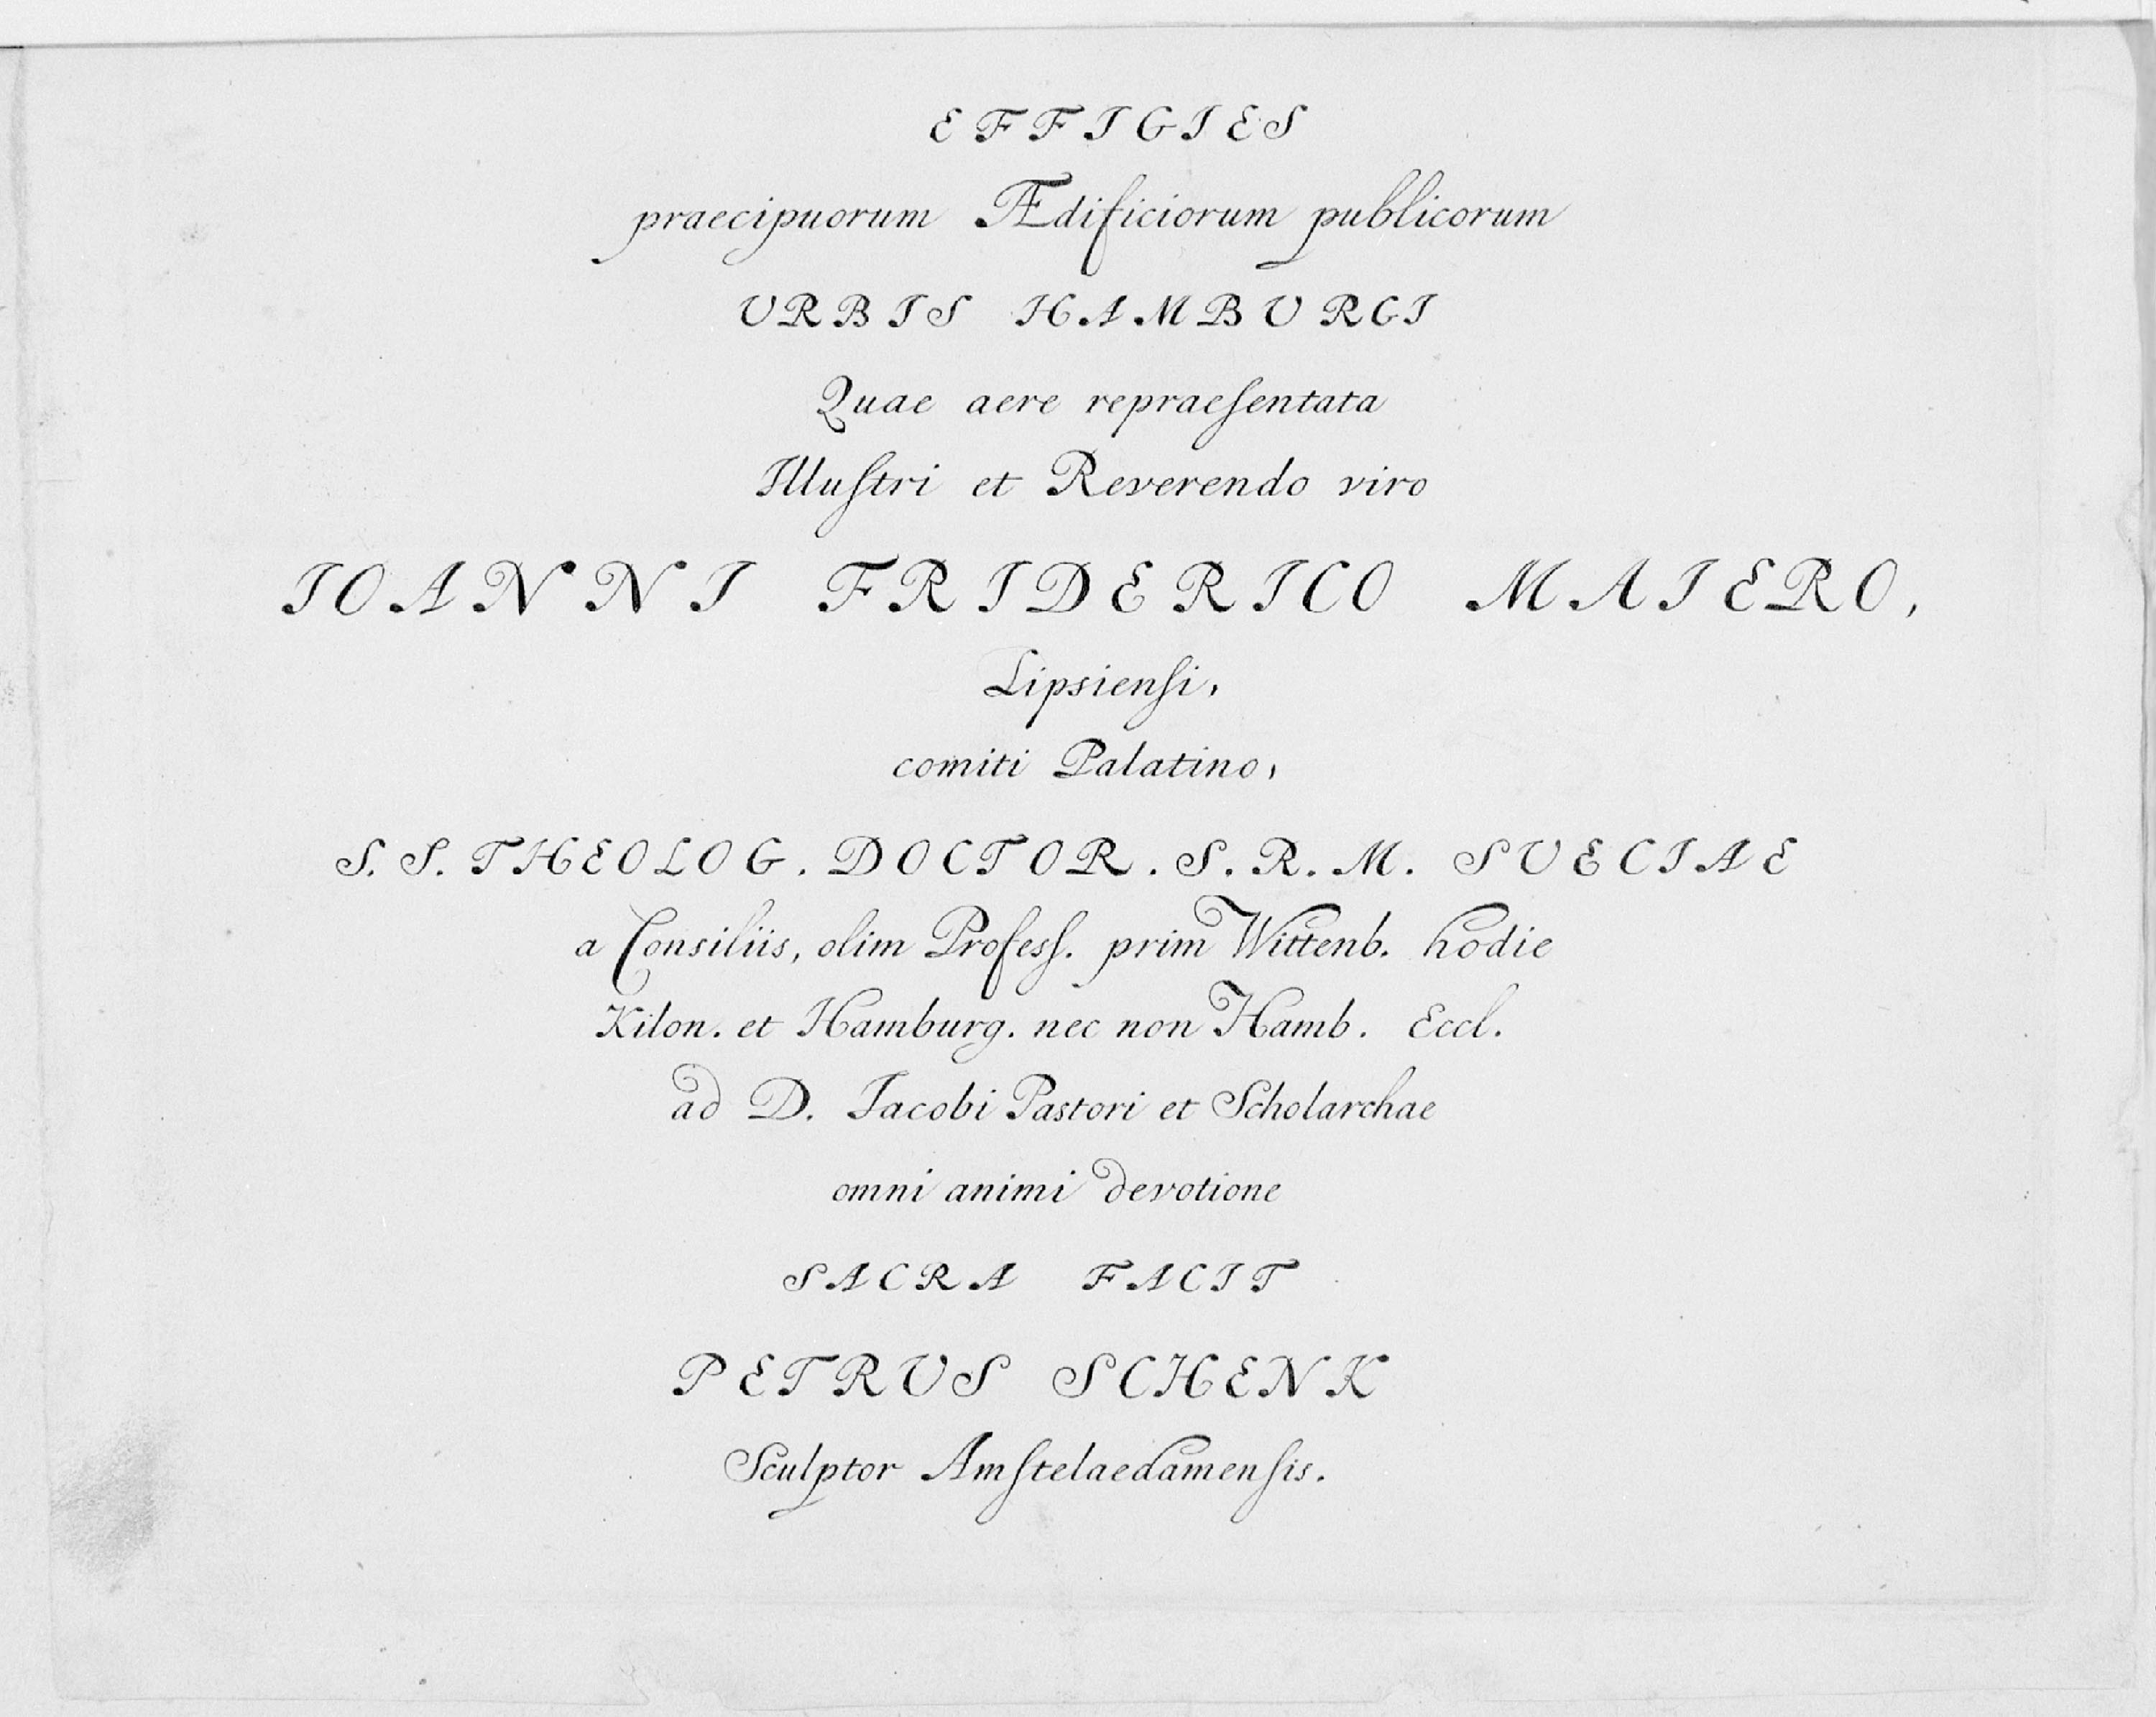 EFFIGIES
praecipuorum Ædificiorum publicorum
VRBIS HAMBVRGI
Quae aere repraeſentata
Illuſtri et Reverendo viro
IOANNI FRIDERICO MAIERO,
Lipsienſi,
comiti Palatino,
S. S. THEOLOG. DOCTOR. S. R. M. SVECIAE
a Consiliis, olim Profesſ. prim Wittenb. hodie
Kilon. et Hamburg. nec non Hamb. Eccl.
ad D. Iacobi Pastori et Scholarchae
omni animi devotione
SACRA FACIT
PETRVS SCHENK
Sculptor Amſtelaedamenſis.